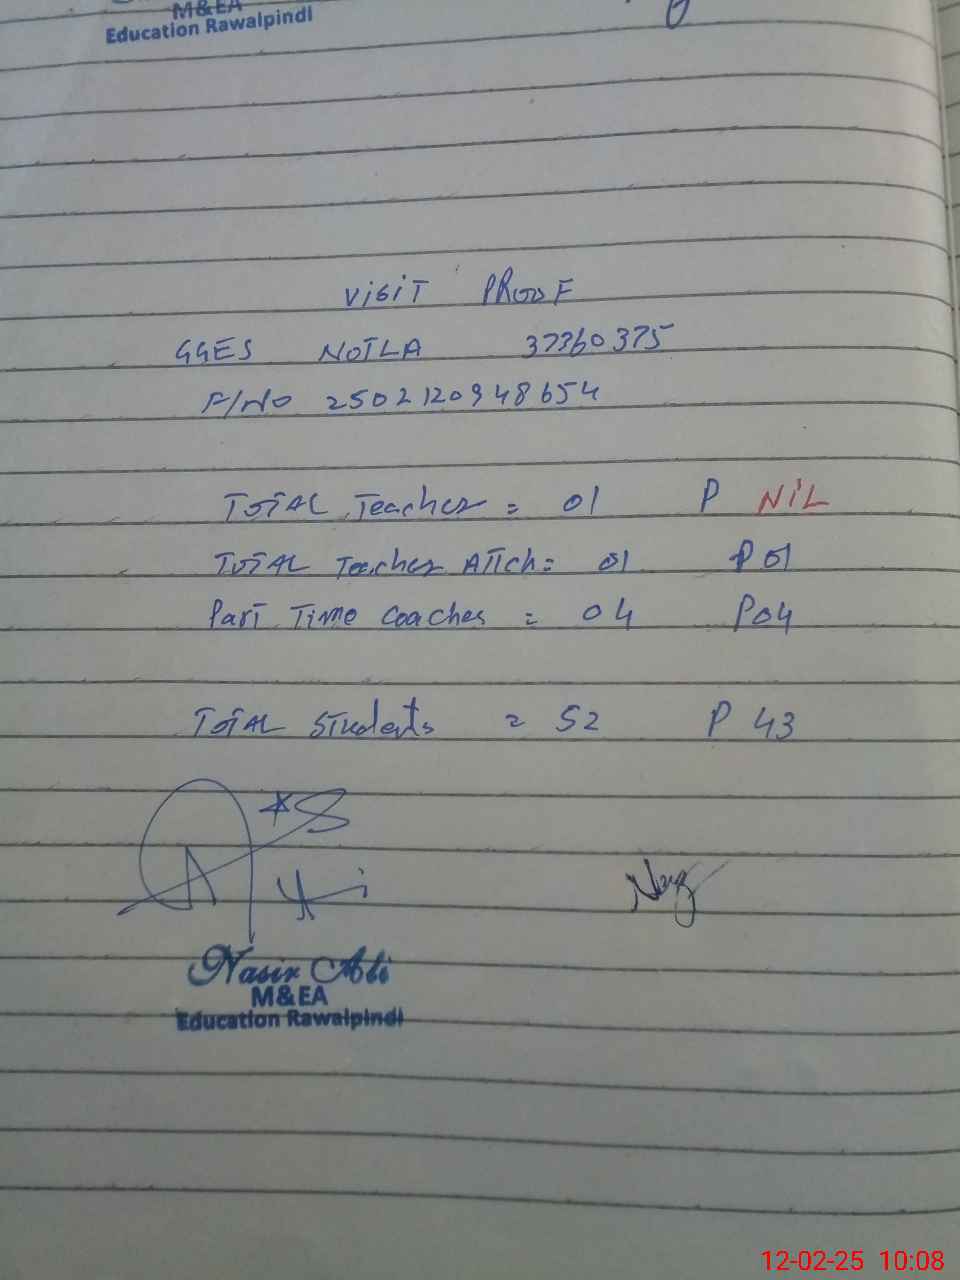 M&EA
Education Rawalpindi
VISIT PROOF
GGES NOTLA 37360375
F/NO 2502120948654
TOTAL Teacher = 01 P NIL
TOTAL Teacher ATTch = 01 P 01
Part Time Coaches = 04 P04
TOTAL Students = 52 P 43
Nasir Ali
M&EA
Education Rawalpindi
12-02-25 10:08